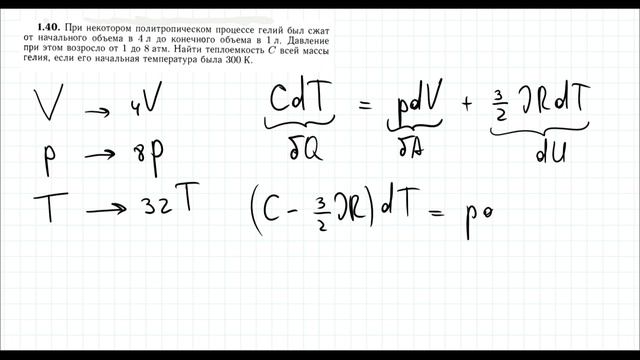 1.40. При некотором политропическом процессе гелий был сжат
от начального объема в 4 л до конечного объема в 1 л. Давление
при этом возросло от 1 до 8 атм. Найти теплоемкость C всей массы
гелия, если его начальная температура была 300 К.
V → 4V
p → 8p
T → 32T
CdT = pdV + 3/2 νRdT
δQ δA dU
(C - 3/2 νR)dT = p